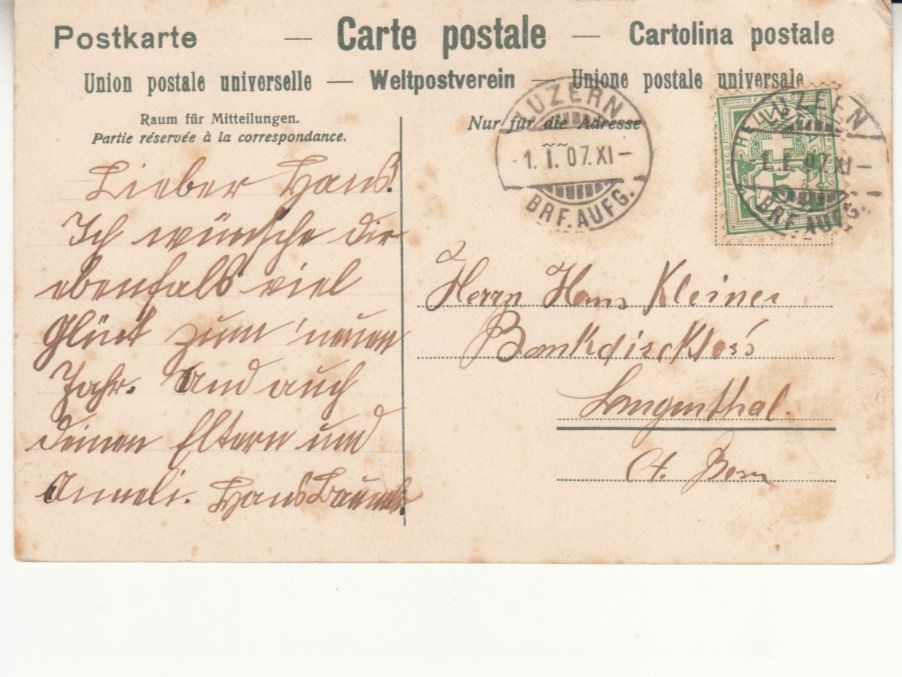 Postkarte — Carte postale — Cartolina postale
Union postale universelle — Weltpostverein — Unione postale universale
Raum für Mitteilungen.
Partie réservée à la correspondance.
Nur für die Adresse
LUZERN
1. I. 07. XI –
BRF. AUFG.
LUZERN
1. I. 07. XI –
BRF. AUFG.
HELVETIA
5
Lieber Hans.
Ich wünsche dir
ebenfals viel
Glück zum neuen
Jahr. Und auch
deinen Eltern und
Anneli. Hans
Herrn Hans Kleiner
Bankdirektors
Langenthal.
Ct. Bern